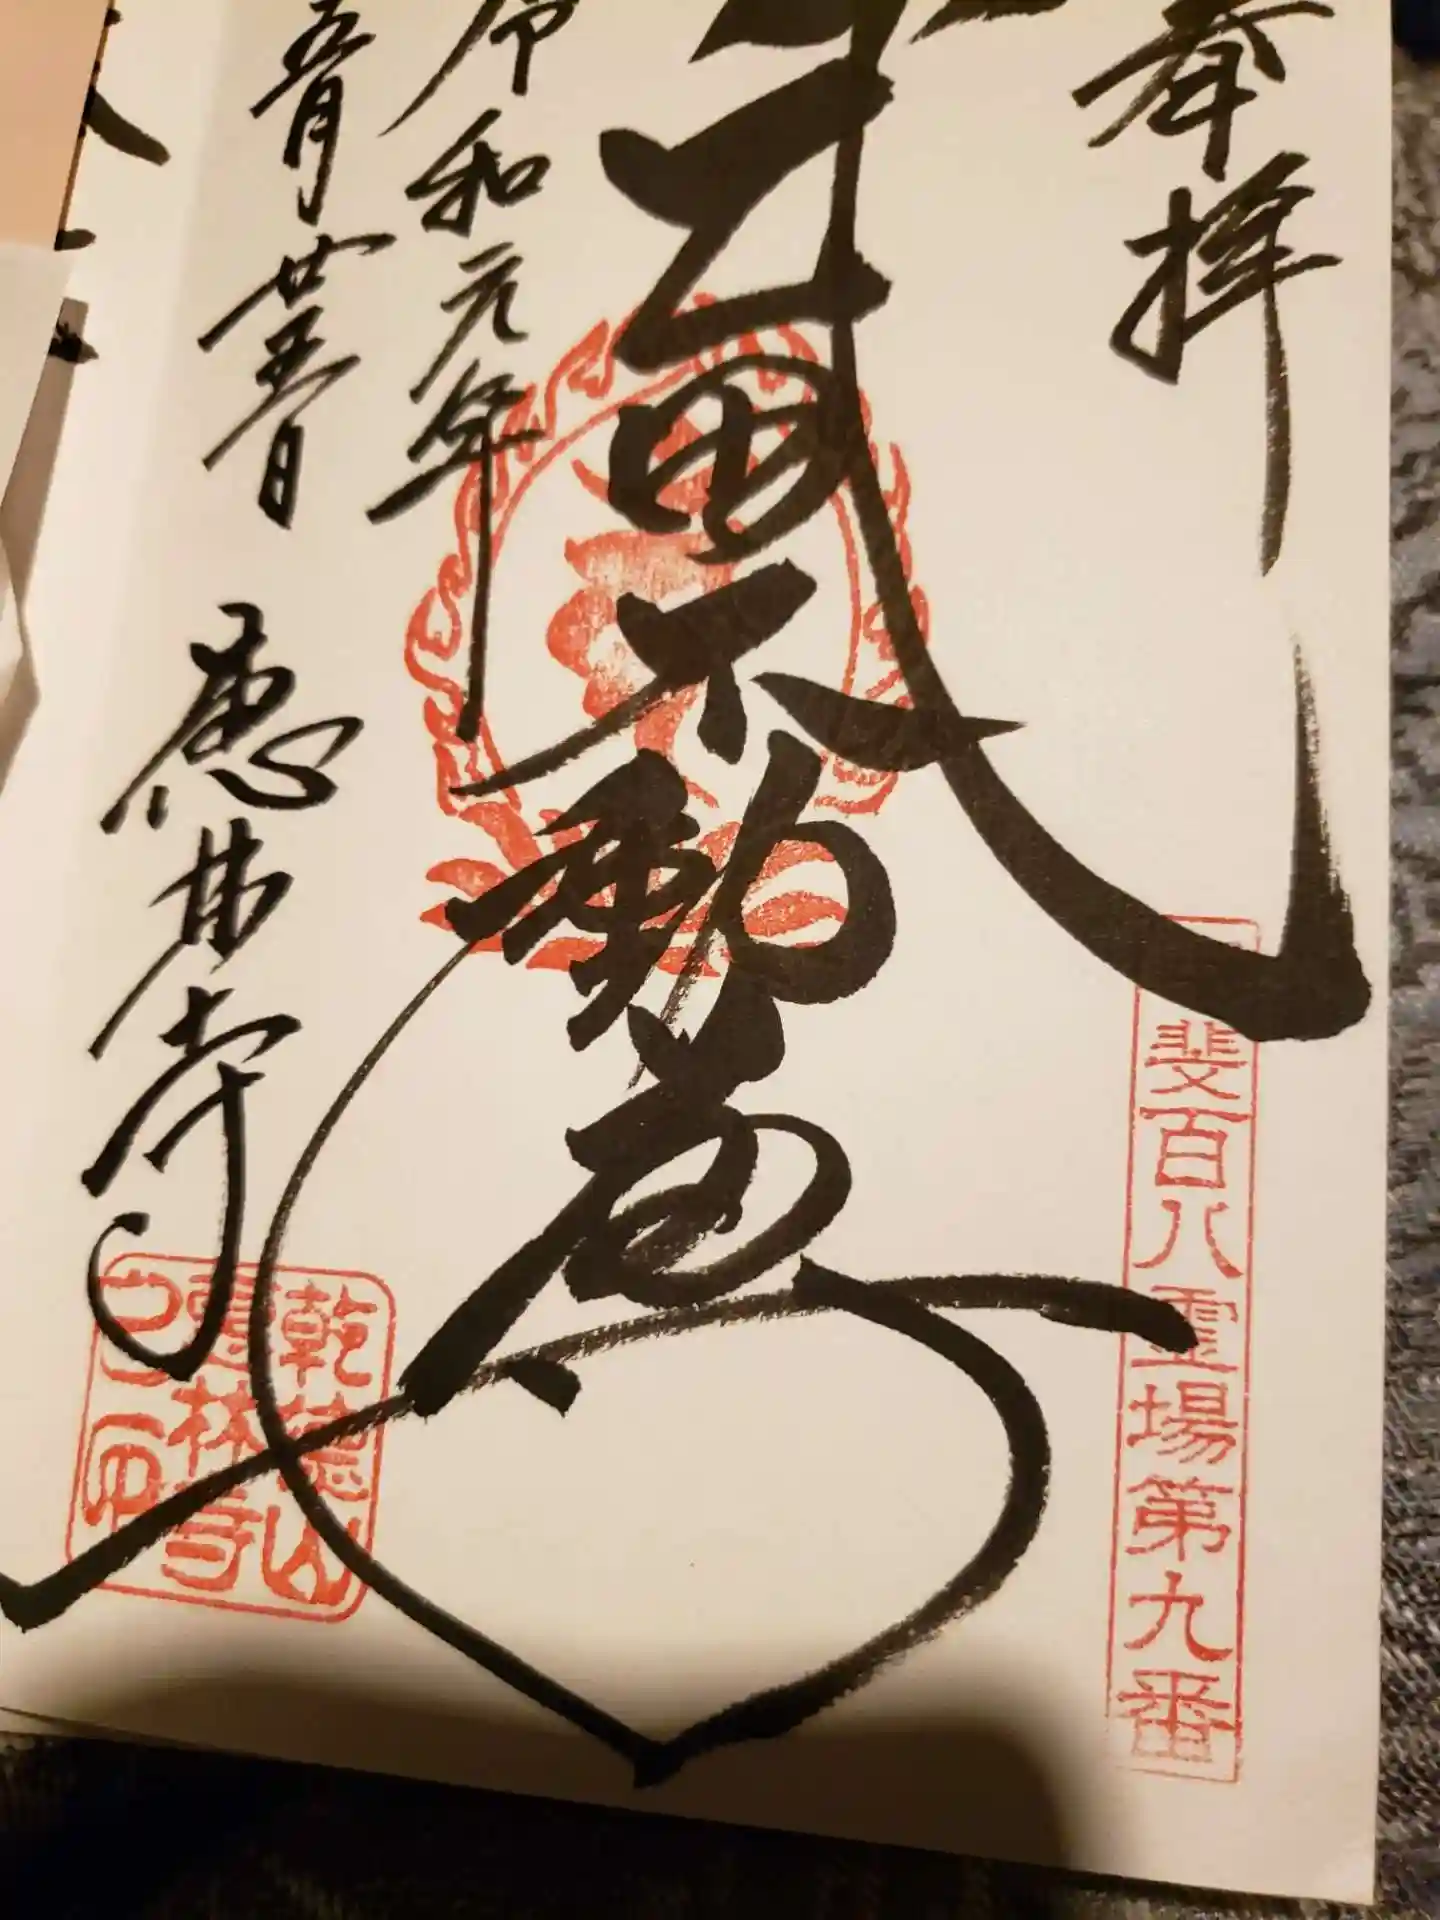 奉拝
斐百八霊場第九番
武田不動尊
令和元年
五月廿五日
惠林寺
乾徳山
惠林寺